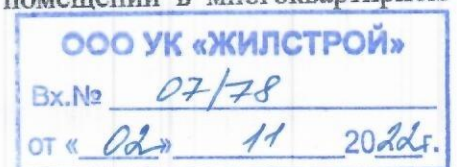 помещений в многоквартирном
ООО УК «ЖИЛСТРОЙ»
Вх.№ 07/78
от « 02 » 11 2022г.